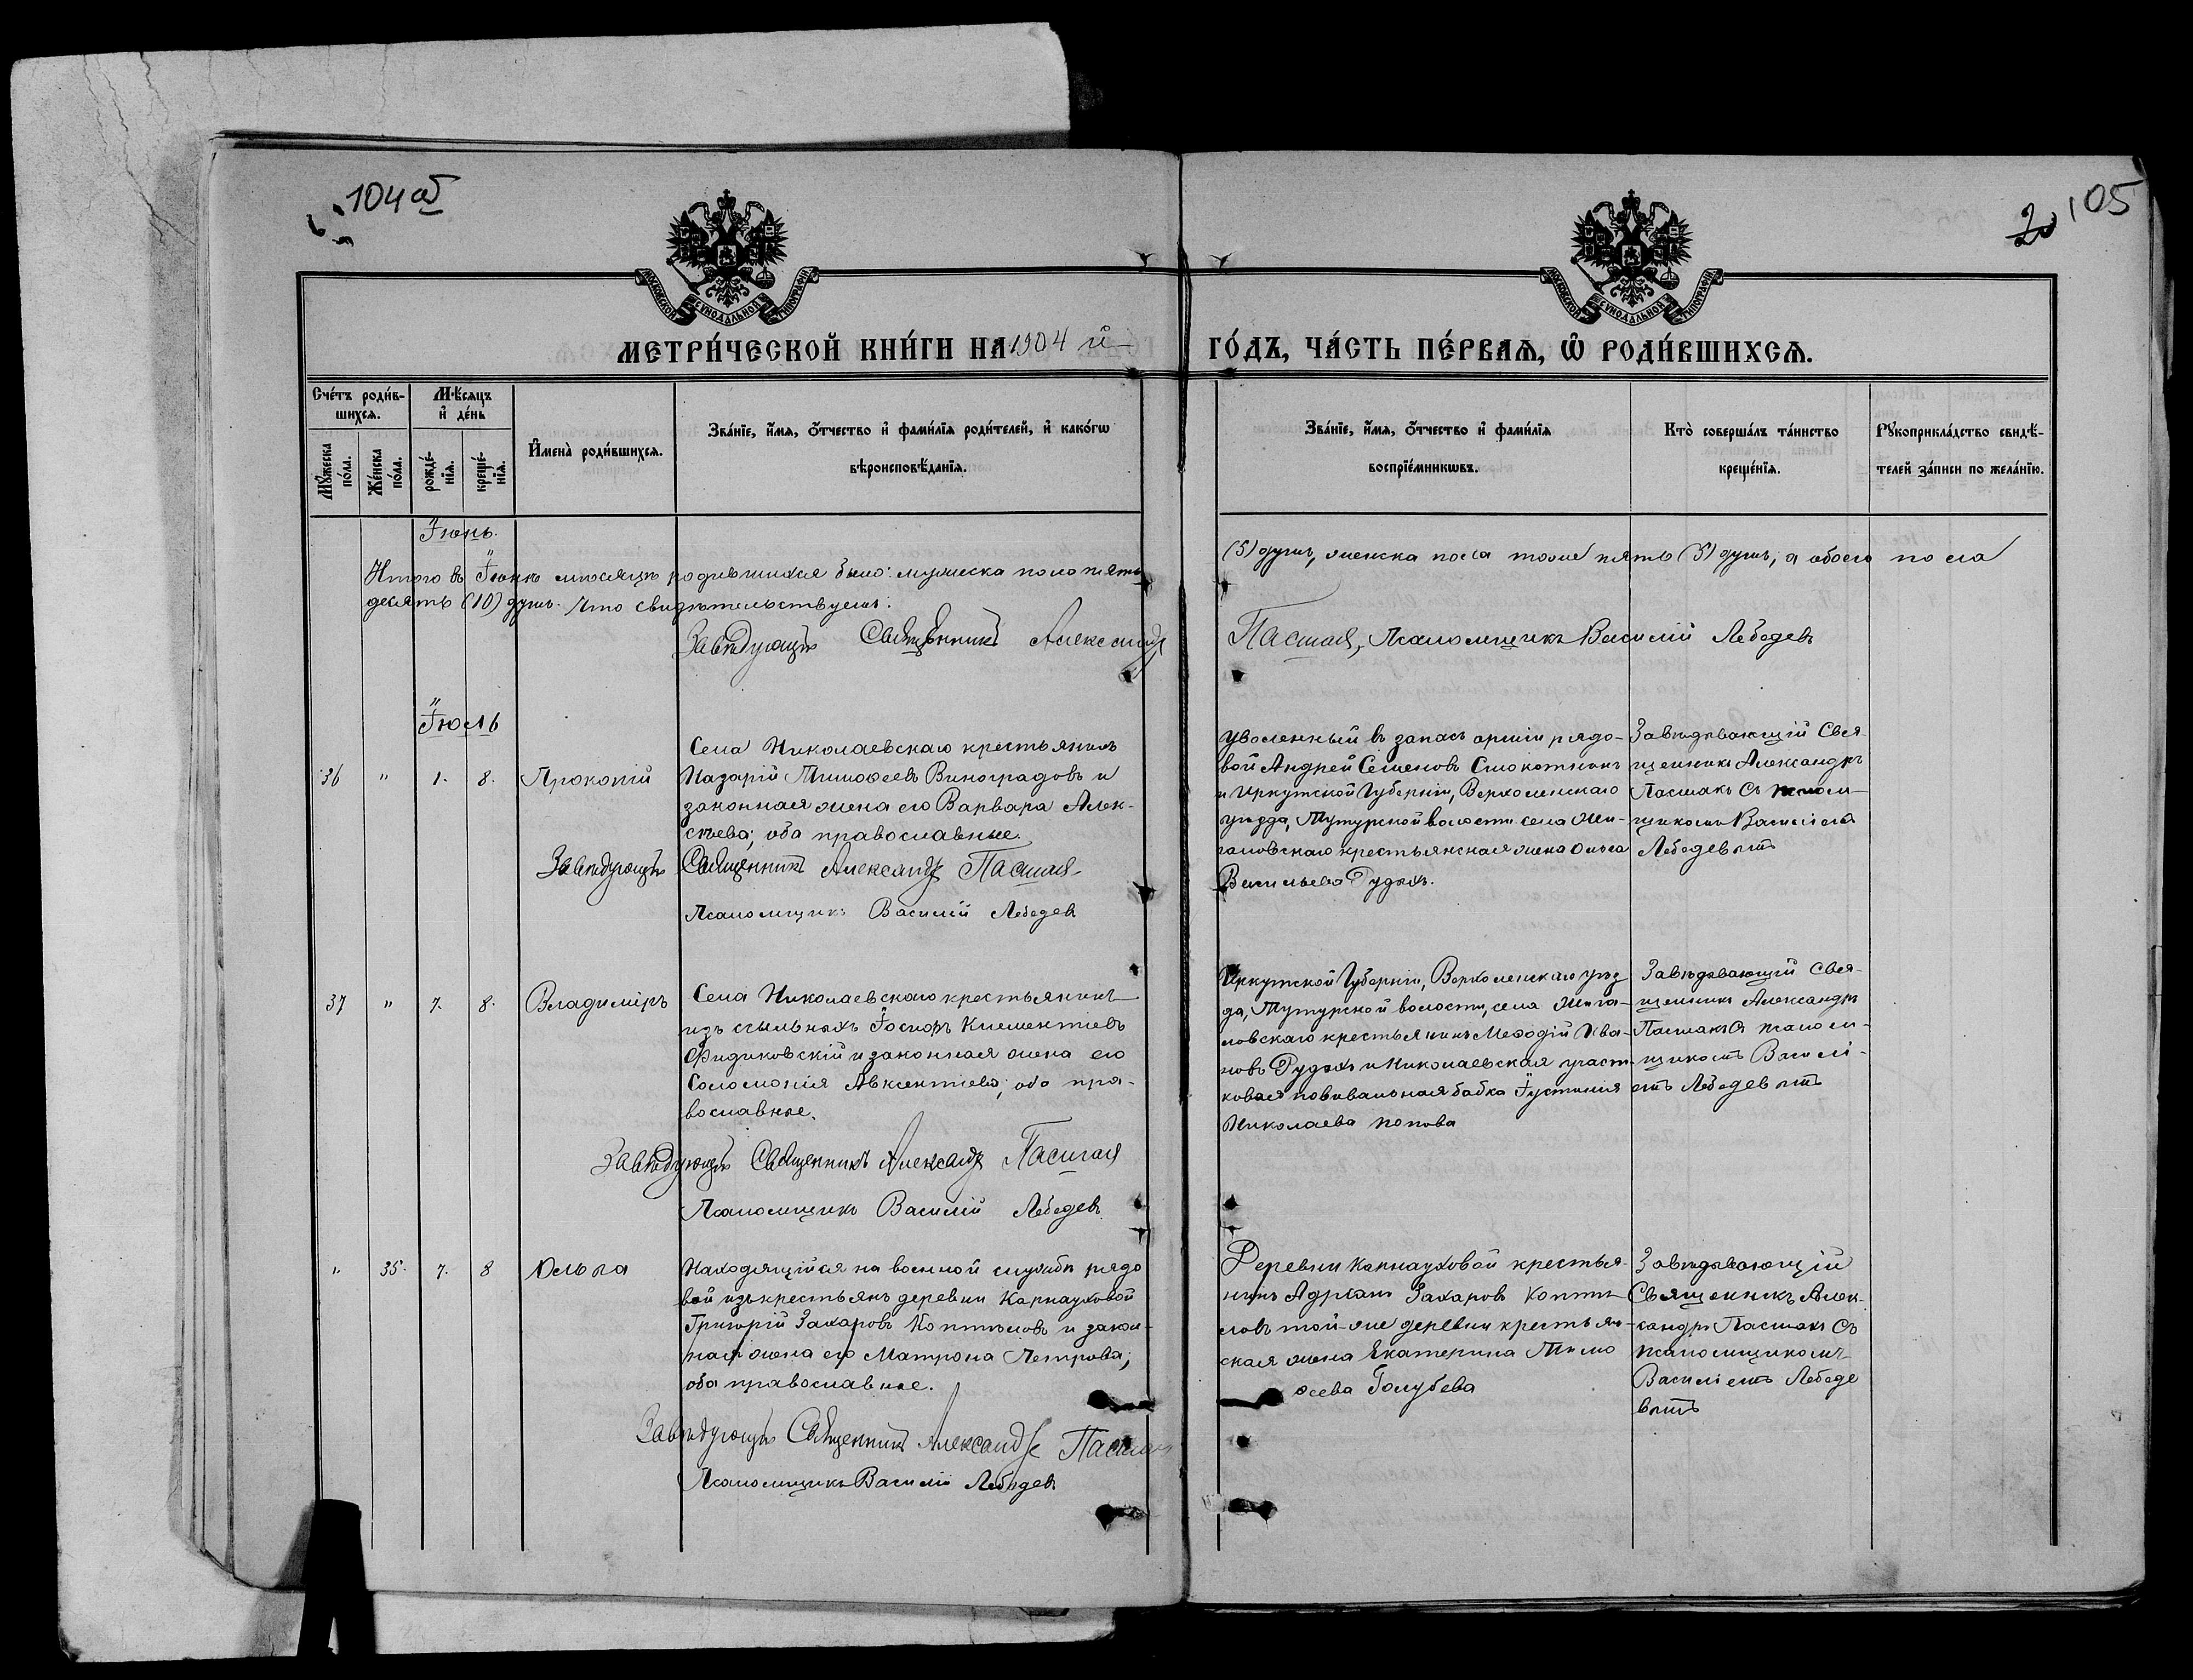 104 об
2
105
МОСКОВСКОЙ СѴНОДАЛЬНОЙ ТИПОГРАФІИ
МОСКОВСКОЙ СѴНОДАЛЬНОЙ ТИПОГРАФІИ
МЕТРИ́ЧЕСКОЙ КНИ́ГИ НА 1904 й ГО́ДЪ, ЧА́СТЬ ПЕ́РВАѦ, Ѡ҆ РОДИ́ВШИХСѦ.
Сче́тъ роди́в-
шихсѧ.
Мѣ́сѧцъ
и҆ де́нь
Мꙋ́жеска
по́ла.
Же́нска
по́ла.
рожде́-
нїѧ.
креще́-
нїѧ.
И҆мена̀ роди́вшихсѧ.
Зва́нїе, и҆́мѧ, ѻ҆́тчество и҆ фами́лїѧ роди́телей, и҆ како́гѡ
вѣроисповѣ́данїѧ.
Зва́нїе, и҆́мѧ, ѻ҆́тчество и҆ фами́лїѧ
воспрїе́мникѡвъ.
Кто̀ соверша́лъ та́инство
креще́нїѧ.
Рꙋкоприкла́дство свидѣ́-
телей за́писи по жела́нїю.
Іюнь.
Итого въ Іюнѣ мѣсяцѣ родившихся было: мужеска пола пять
(5) душъ, женска пола тоже пять (5) душъ, а обоего пола
десять (10) душъ. Что свидѣтельствуемъ:
Завѣдующій Священникъ Александръ Пасмакъ, Псаломщикъ Василій Лебедевъ
Іюль
36 " 1. 8. Прокопій
Села Николаевскаго крестьянинъ
Назарій Тимоѳеевъ Виноградовъ и
законная жена его Варвара Алек-
сѣева; оба православные.
Завѣдующій Священникъ Александръ Пасмакъ
Псаломщикъ Василій Лебедевъ
уволенный въ запасъ арміи рядо-
вой Андрей Семеновъ Смокотнинъ
и Иркутской Губерніи, Верхоленскаго
уѣзда, Тутурской волости села Жи-
галовскаго крестьянская жена Ольга
Васильева Рудыхъ.
Завѣдывающій Свя-
щенникъ Александръ
Пасмакъ съ псалом-
щикомъ Василіемъ
Лебедевымъ
37 " 7. 8. Владиміръ
Села Николаевскаго крестьянинъ
изъ ссыльныхъ Іосифъ Климентіевъ
Фидиковскій и законная жена его
Соломонія Авксентіева; оба пра-
вославные.
Завѣдующій Священникъ Александръ Пасмакъ
Псаломщикъ Василій Лебедевъ
Иркутской Губерніи, Верхоленскаго уѣз
да, Тутурской волости, села Жига-
ловскаго крестьянинъ Меѳодій Ива-
новъ Рудыхъ и Николаевская участ-
ковая повивальная бабка Іустинія
Николаева Попова
Завѣдывающій Свя-
щенникъ Александръ
Пасмакъ съ псалом-
щикомъ Василі-
емъ Лебедевымъ
" 35. 7. 8 Ольга
Находящійся на военной службѣ рядо
вой изъ крестьянъ деревни Карнауховой
Григорій Захаровъ Коптѣловъ и закон-
ная жена его Матрона Петрова;
оба православные.
Завѣдующій Священникъ Александръ Пасмакъ
Псаломщикъ Василій Лебедевъ
Деревни Карнауховой крестья-
нинъ Адріанъ Захаровъ Коптѣ-
ловъ той-же деревни крестьян-
ская жена Екатерина Тимо
ѳеева Голубева
Завѣдывающій
Священникъ Алек-
сандръ Пасмакъ съ
псаломщикомъ
Василіемъ Лебеде
вымъ